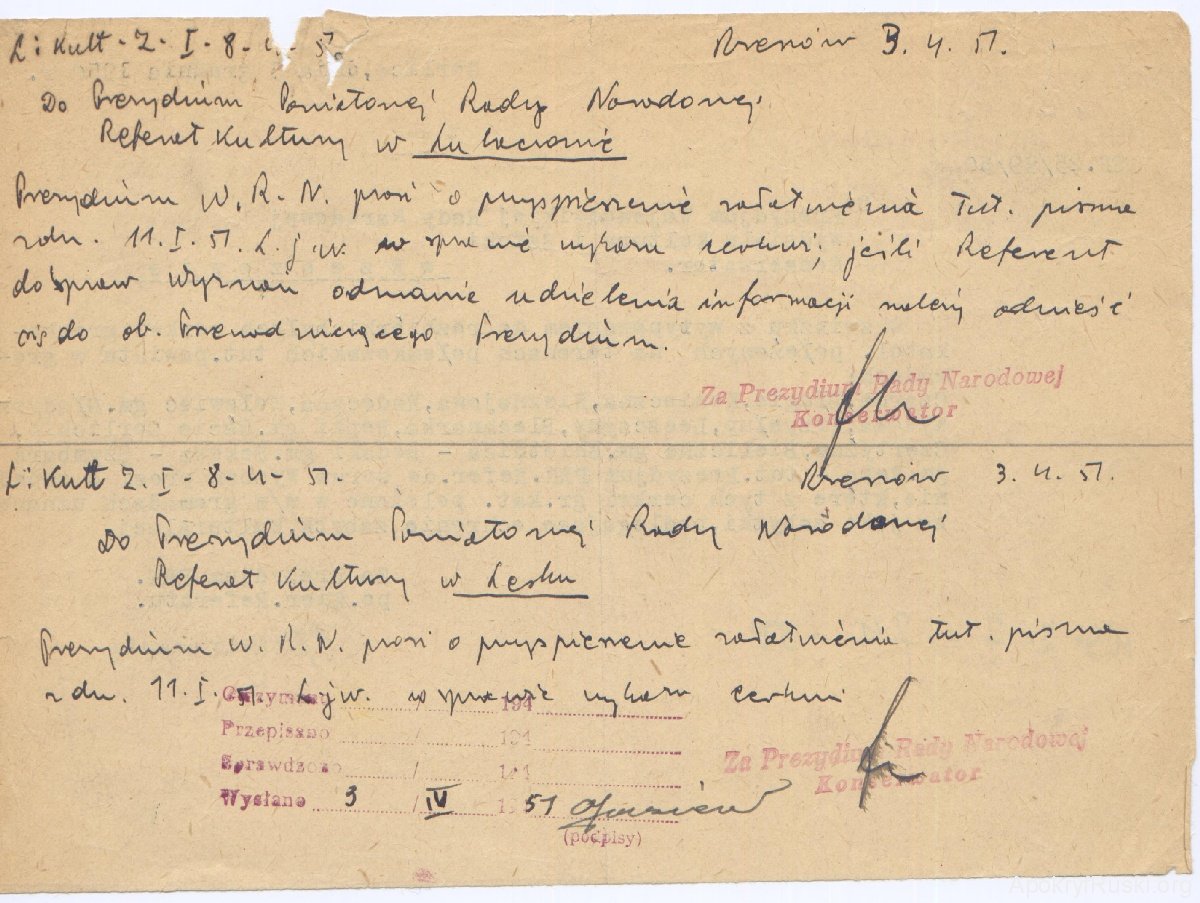 L: Kult - Z - I - 8 - 51.
Rzeszów 3. 4. 51.
Do Prezydium Powiatowej Rady Narodowej
Referat Kultury w Lubaczowie
Prezydium W. R. N. prosi o przyspieszenie załatwienia tut. pisma
z dn. 11. I. 51. L. jw. w sprawie wykazu cerkwi, jeśli Referent
do spraw Wyznań odmawia udzielenia informacji należy odnieść
się do ob. Przewodniczącego Prezydium.
Za Prezydium Rady Narodowej
Konserwator
L: Kult Z. I - 8 - 4 - 51.
Rzeszów 3. 4. 51.
Do Prezydium Powiatowej Rady Narodowej
Referat Kultury w Lesku
Prezydium W. R. N. prosi o przyspieszenie załatwienia tut. pisma
z dn. 11. I. 51 L. jw. w sprawie wykazu cerkwi
Otrzymano / 194
Przepisano / 194
Sprawdzono / 194
Wysłano 3 / IV 1951
(podpisy)
Za Prezydium Rady Narodowej
Konserwator
ApokryfRuski.org